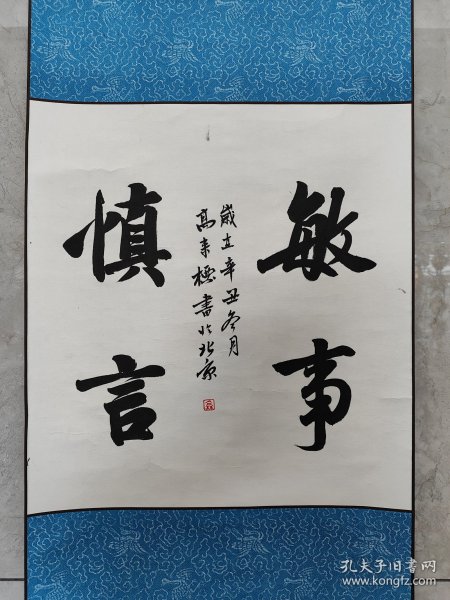 敏事
慎言
歲在辛丑冬月
高来穩書於北京
孔夫子旧书网
www.kongfz.com